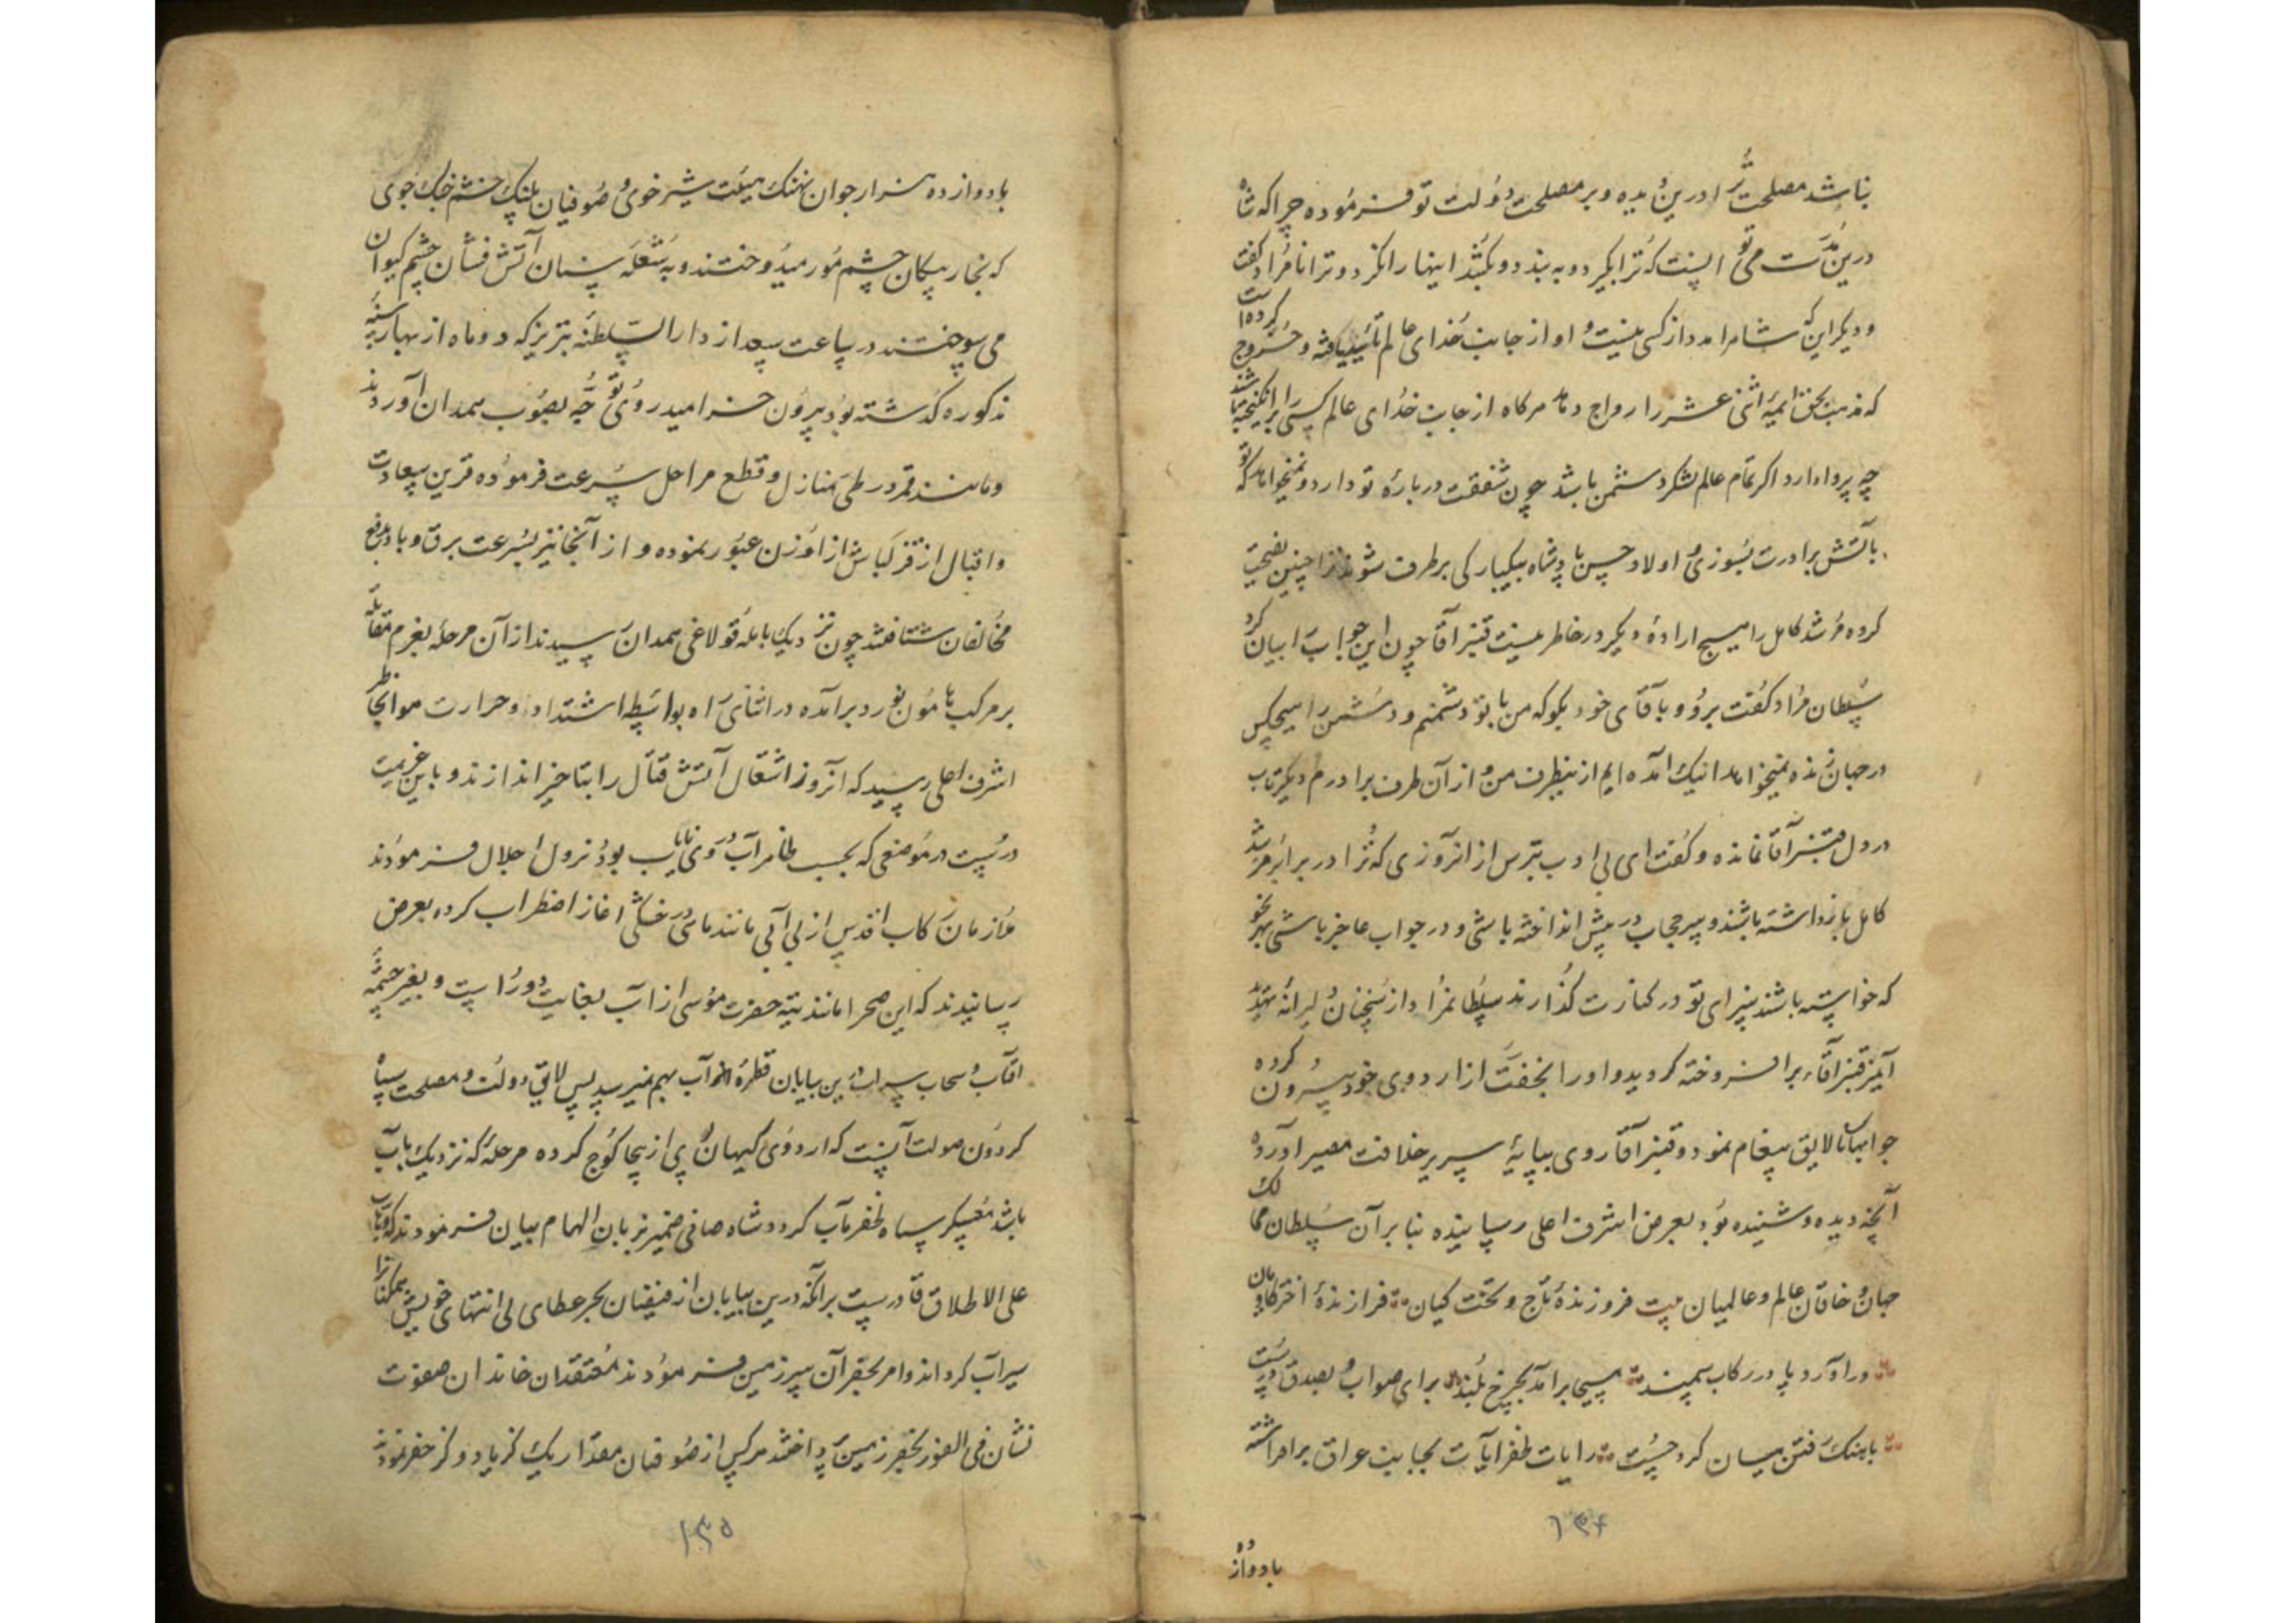 بناشد مصلحت ترا درین دیده و بر مصلحت دولت تو فرموده چرا که شاه
درین مدت می توانست که ترا بگیرد و به بند و بکشد اینها را نکرد و ترا نامراد گفت
و دیگر این که شاه را مدد از کسی نیست و او از جانب خدای عالم تأیید یافته و خروج کرده است
که مذهب بحق ایمه اثنی عشر را رواج دهد هرگاه از جانب خدای عالم کسی برانگیخته باشند
چه پروا دارد اگر تمام عالم لشکر دشمن باشد چون شفقت درباره تو دارد و نمیخواهد که تو
بآتش برادرت بسوزی و اولاد حسن پادشاه بیکبارکی برطرف شوند ترا چنین نصیحت
کرده مرشد کامل را هیچ اراده دیگر در خاطر نیست قنبر آقا چون این جواب را بیان کرد
سلطان مراد گفت برو و با آقای خود بگو که من با تو دشمنم و دشمن را هیچکس
در جهان زنده نمیخواهد اینک آمده ایم از ینطرف من و از آن طرف برادرم دیگر تاب
در دل قنبر آقا نمانده و گفت ای بی ادب بترس از انروزی که ترا در برابر مرشد
کامل بازداشته باشند و سر حجاب در پیش انداخته باشی و در جواب عاجز باشی بهر نحو
که خواسته باشند سزای تو در کنارت گذارند سلطانمراد از سخنان دلیرانه تهدید
آمیز قنبر آقا برافروخته گردید و او را بخفت از اردوی خود بیرون کرده
جوابهای نالایق پیغام نمود و قنبر آقا روی بپایه سریر خلافت مصیر آورده
آنچه دیده و شنیده بود بعرض اشرف اعلی رسانیده بنا بر آن سلطان ممالک
جهان و خاقان عالم و عالمیان بیت فروزنده تاج و تخت کیان فرازنده اختر کاویان
در آورد پا در رکاب سمند مسیحی برآمد بچرخ بلند برای صواب و بصدق درست
باهنک رفتن میان کرد چست رایات ظفر آیات بجانب عراق برافراشته
۱۳۴
بادوازده
با دوازده هزار جوان نهنک هیئت شیر خوی و صوفیان پلنک خشم جنک جوی
که بخار پیکان چشم مور میدوختند و به شعله سنان آتش فشان چشم کیوان
می سوختند در ساعت سعد از دار السلطنه تبریز که دو ماه از بهار سنه
مذکوره گذشته بود بیرون خرامید روی توجه بصوب همدان آوردند
و مانند قمر در طی منازل و قطع مراحل سرعت فرموده قرین سعادت
و اقبال از قزل اوزن عبور نموده و از آنجا نیز بسرعت برق و باد بدفع
مخالفان شتافتند چون نزدیک بابله قولاغی همدان رسیدند از آن مرحله بعزم مقابله
بر مرکب هامون نورد برآمده در اثنای راه بواسطه اشتداد و حرارت هوا بخاطر
اشرف اعلی رسید که آنروز اشتعال آتش قتال را بتاخیر اندازند و باین عزیمت
درست در موضعی که بحسب ظاهر آب در وی نایاب بود نزول اجلال فرمودند
ملازمان رکاب اقدس از بی آبی مانند ماهی در خشکی اغاز اضطراب کرده بعرض
رسانیدند که این صحرا مانند تیه حضرت موسی از آب بغایت دور است و بغیر چشمه
آفتاب و سحاب سراب درین بیابان قطره از آب بهم نمیرسد پس لایق دولت و مصلحت سپاه
گردون صولت آنست که اردوی کیهان پوی از یجا کوچ کرده مرحله که نزدیک بآب
باشد معسکر سپاه ظفر مآب گردد شاه صافی ضمیر بزبان الهام بیان فرمودند که وهاب
علی الاطلاق قادرست برآنکه درین بیابان از فیضان بحر عطای بی انتهای خویش همکنان را
سیراب گرداند و امر بحفر آن سرزمین فرمودند معتقدان خاندان صفوت
نشان فی الفور بحفر زمین پرداختند هرکس از صوفیان مقدار یک گز یا دو گز حفر نمودند
۱۳۵